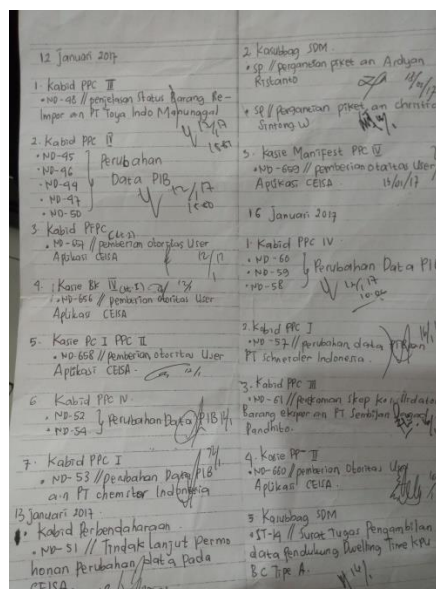 12 Januari 2017
1. Kabid PPC III
• ND-48 // penjelasan Status Barang Re-
Impor an PT Taya Indo Manunggal
12/17
2. Kabid PPC IV
• ND-45
• ND-46
• ND-49
• ND-47
• ND-50
Perubahan
Data PIB
12/17
3. Kabid PFPC
• ND-657 // pemberian otoritas User
Aplikasi CEISA
12/1
4. Kasie BK IV
• ND-656 // pemberian otoritas User
Aplikasi CEISA
5. Kasie PC I PPC II
• ND-658 // pemberian otoritas User
Aplikasi CEISA.
6 Kabid PPC IV.
• ND-52
• ND-54
Perubahan Data PIB
7. Kabid PPC I
• ND-53 // perubahan Data PIB
a.n PT chemstar Indonesia
13 Januari 2017
1. Kabid Perbendaharaan.
• ND-51 // Tindak lanjut permo
honan Perubahan data pada
CEISA.
2 Kasubbag SDM.
• SP // pergantian piket an Ardyan
Ristanto
13/01/17
• SP // pergantian piket an christie
Sintong W
3. Kasie Manifest PPC IV
• ND-659 // pemberian otoritas User
Aplikasi CEISA.
13/01/17
16 Januari 2017
1. Kabid PPC IV.
• ND-60
• ND-59
• ND-58
Perubahan Data PIB
2. Kabid PPC I
• ND-57 // perubahan data
PT Schneider Indonesia.
3. Kabid PPC III
• ND-61 //
Barang ekspor an PT Sembilan
Pandhito.
4. Kasie PP II
• ND-660 // pemberian otoritas User
Aplikasi CEISA.
5 Kasubbag SDM
• ST-14 // Surat Tugas Pengambilan
data Pendukung Dwelling Time KPU
BC Tipe A.